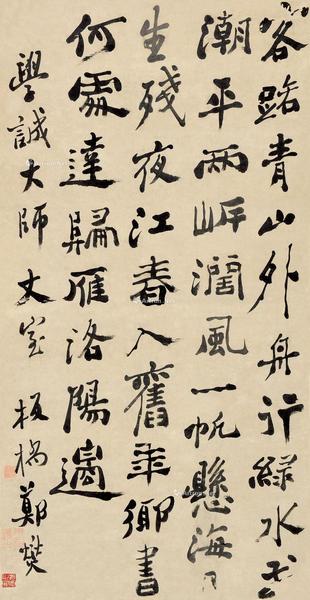 客路青山外舟行綠水前
潮平兩岸濶風一帆懸海日
生殘夜江春入舊年鄉書
何處達歸雁洛陽邊
學誠大師丈室板橋鄭燮